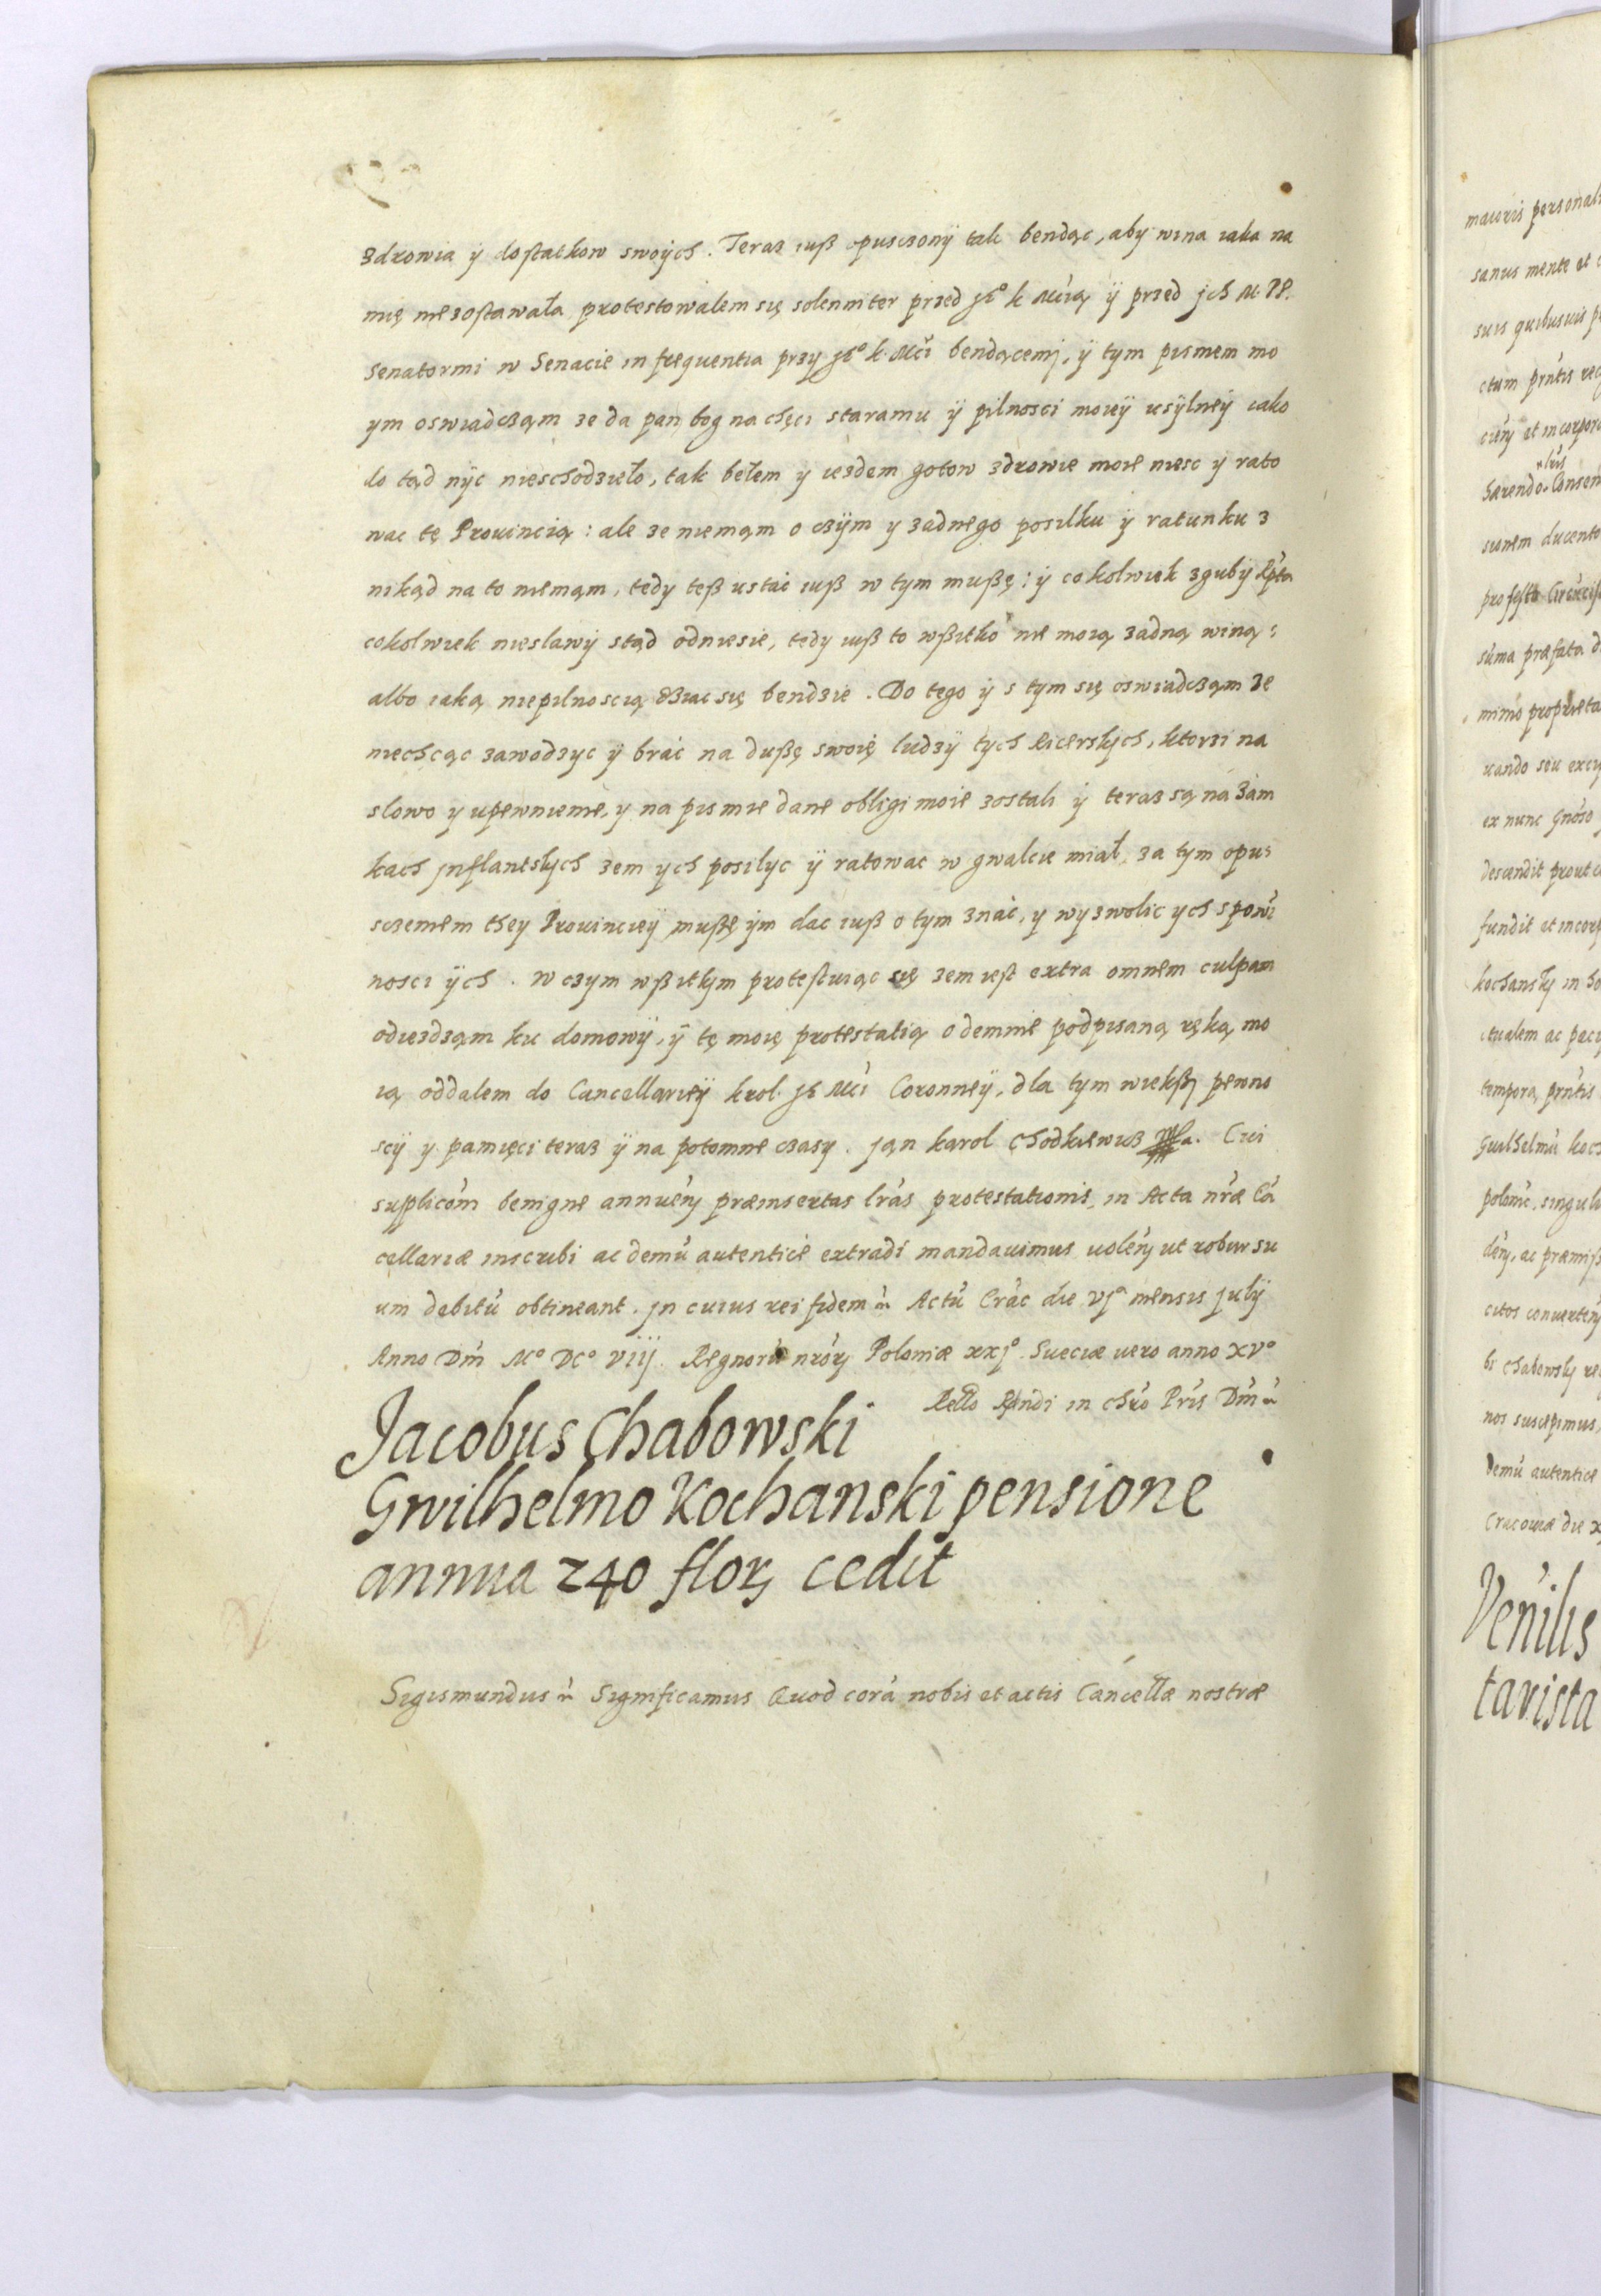 zdrowia ÿ dostatkow swoÿch. Teraz iuß opusczonÿ tak bendąc, aby wina iaka na
mię nie zostawała protestowałem się solenniter przed Je° k Mcią ÿ przed jch M. PP.
Senatormi w Senacie in frequentia przy Je° k. Mci bendącemj, ÿ tym pismem mo
ym oswiadcząm ze da pan bog na chęci staraniu ÿ pilnosci moieÿ usÿlneÿ iako
do tąd nÿc nieschodzieło, tak bełem y iezdem gotow zdrowie moie niesc ÿ rato
wac tę Prouincią: ale ze niemąm o czÿm y zadnego posilku ÿ ratunku z
nikąd na to niemąm, tedy teß ustać iuß w tym mußę: ÿ cokolwiek zgubÿ Rpta
cokolwiek niesławÿ stąd odniesie, tedy iuß to wßitko nie moią zadną winą
albo iaką niepilnoscią dziac się bendzie. Do tego ÿ s tym się oswiadcząm ze
niechcąc zawodzyc ÿ brać na dußę swoię ludzÿ tych Ricerskych, ktorzi na
slowo y upewnienie, y na pismie dane obligi moie zostali ÿ teraz są na Zam
kach jnflantskych zem ych posilyc ÿ ratowac w gwalcie miał, za tym opus
sczeniem they Prouincieÿ mußę ÿm dac iuß o tym znać, y wyzwolic ych s powi
nosci ÿch. W czym wßitkym protestuiąc się zem iest extra omnem culpam
odiezdząm ku domowÿ, ÿ tę moię protestatią odemnie podpisaną ręką mo
ią oddalem do Cancellarieÿ krol. Je Mci Coronneÿ, dla tym wiekßej pewno
scÿ y pamięci teraz ÿ na potomne czasy. Jan karol Chodkiewicz mpa. Cui
supplicom benigne annueń præinsertas lras protestationis, in Acta nræ Ca
cellariæ inscribi ac demu autentice extradi mandauimus uoleń ut robur su
um debitu obtineant. jn cuius rei fidem Actu Crac die vja mensis julÿ
Anno Dni M° DC° viij. Regnoru nror Poloniæ xxj° Sueciæ uero anno xv°
Rello Rndi in Chro Pris Dni
Jacobus Chabowski
Gwilhelmo Kochanski pensione
annua 240 flor cedit
Sigismundus Significamus Quod cora nobis et actis Cancellæ nostræ
maioris personal
sanus mente et c
suis quibusuis p
ctum prntis rec
cień et incorpor
harendo. Consen
sionem ducento
pro festo Circucis
suma præfata d
mimo proprieta
uando seu excip
ex nunc Gnoso
descendit prout c
fundit et incorp
kochansky in bo
ctualem ac paci
tempora, prntis
Guilhelmu koch
polonic, singula
deń, ac præmiss
citos conuerteń
bi Chabowsky re
nos suscepimus,
Demu autentice
Cracouiæ die x
Venilis
tarista